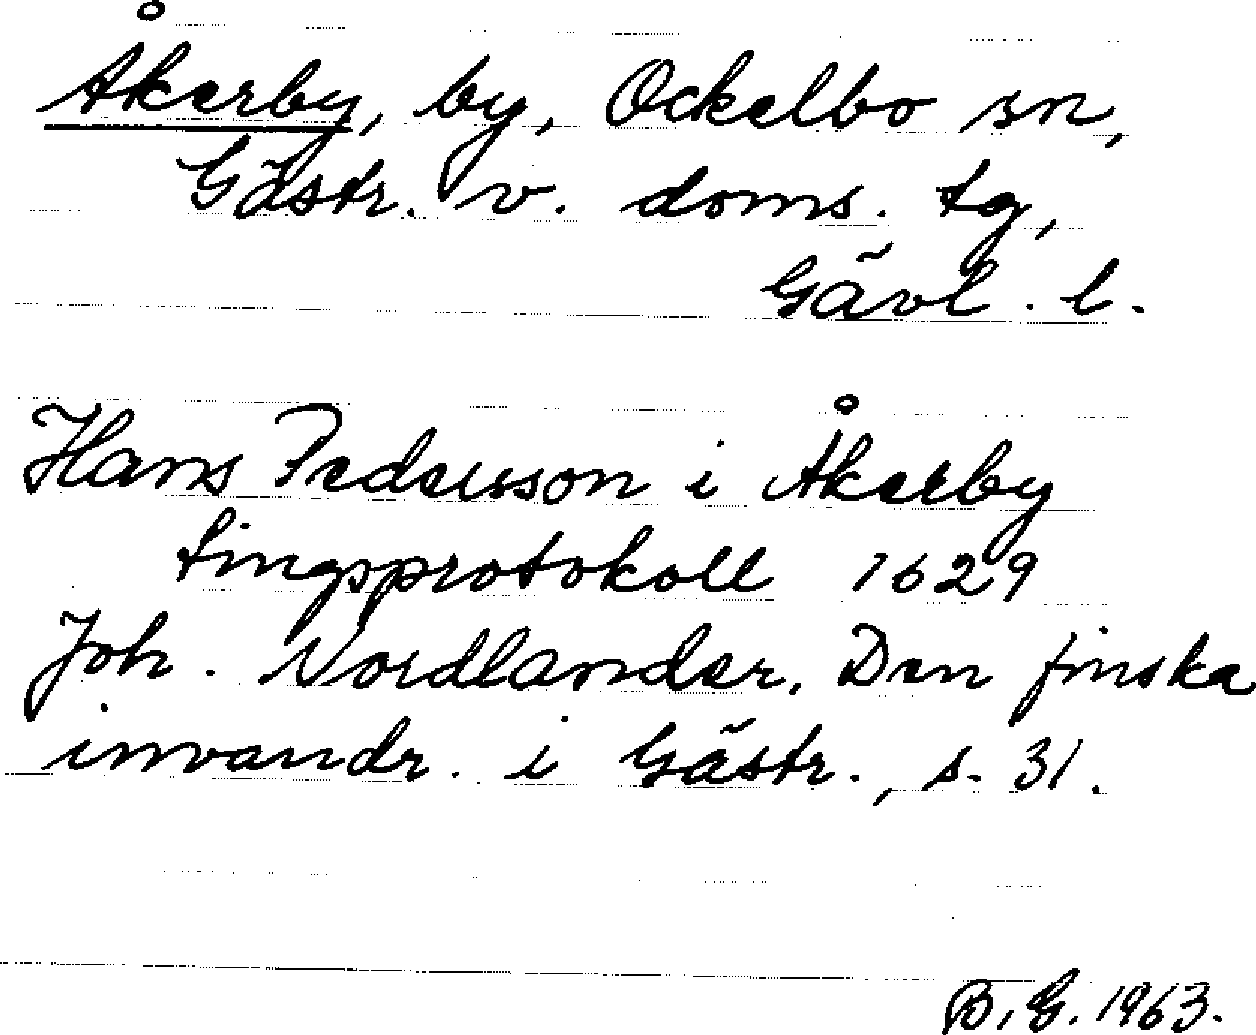 Åkerby, by, Ockelbo sn,
Gästr. v. doms. tg,
Gävl. l.
Hans Pedersson i Åkerby
tingsprotokoll 1629
Joh. Nordlander, Den finska
invandr. i Gästr., s. 31.
B. G. 1963.